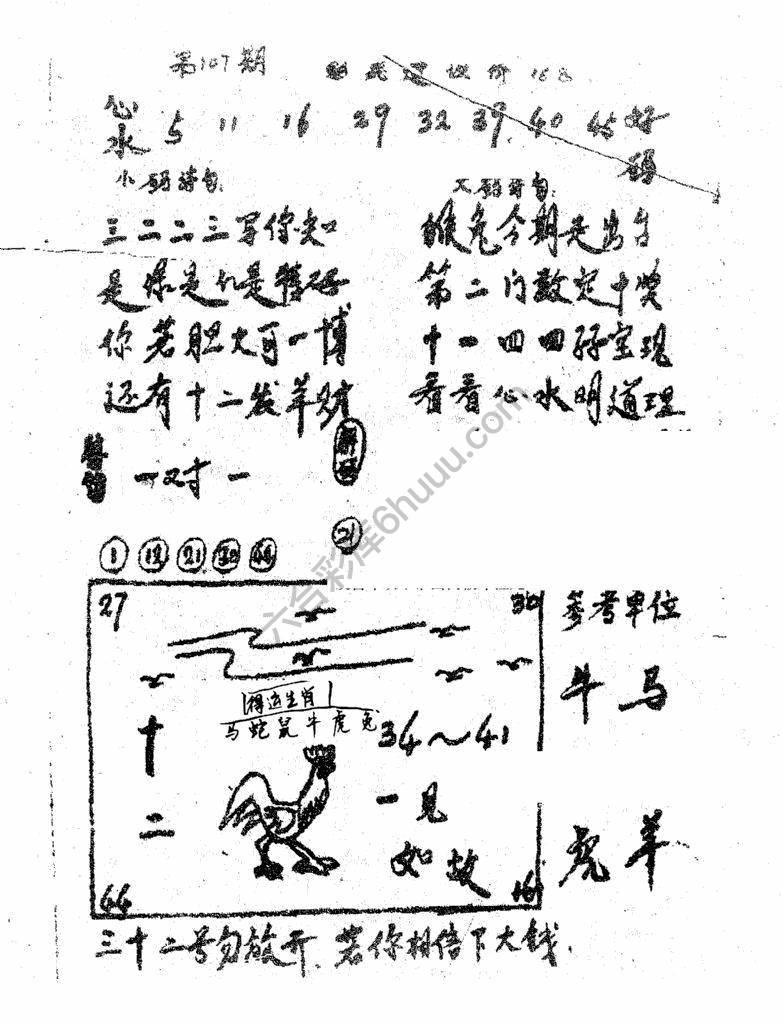 第107期
心水 5 11 16 29 32 39 40 45 好码
小码诗句
三二二三写你知
你若胆大可一博
还有十二发羊财
大码诗句
猴兔今期是出
第二门数定中奖
十一四四好宝现
看看心水明道理
一对一
21
1 12 21 44
27
30
参考单位
牛马
得运生肖
马蛇鼠牛虎兔
34～41
十二
一见如故
虎羊
44
16
三十二号勿放开、若你相信下大钱.
六合彩库6huuu.com